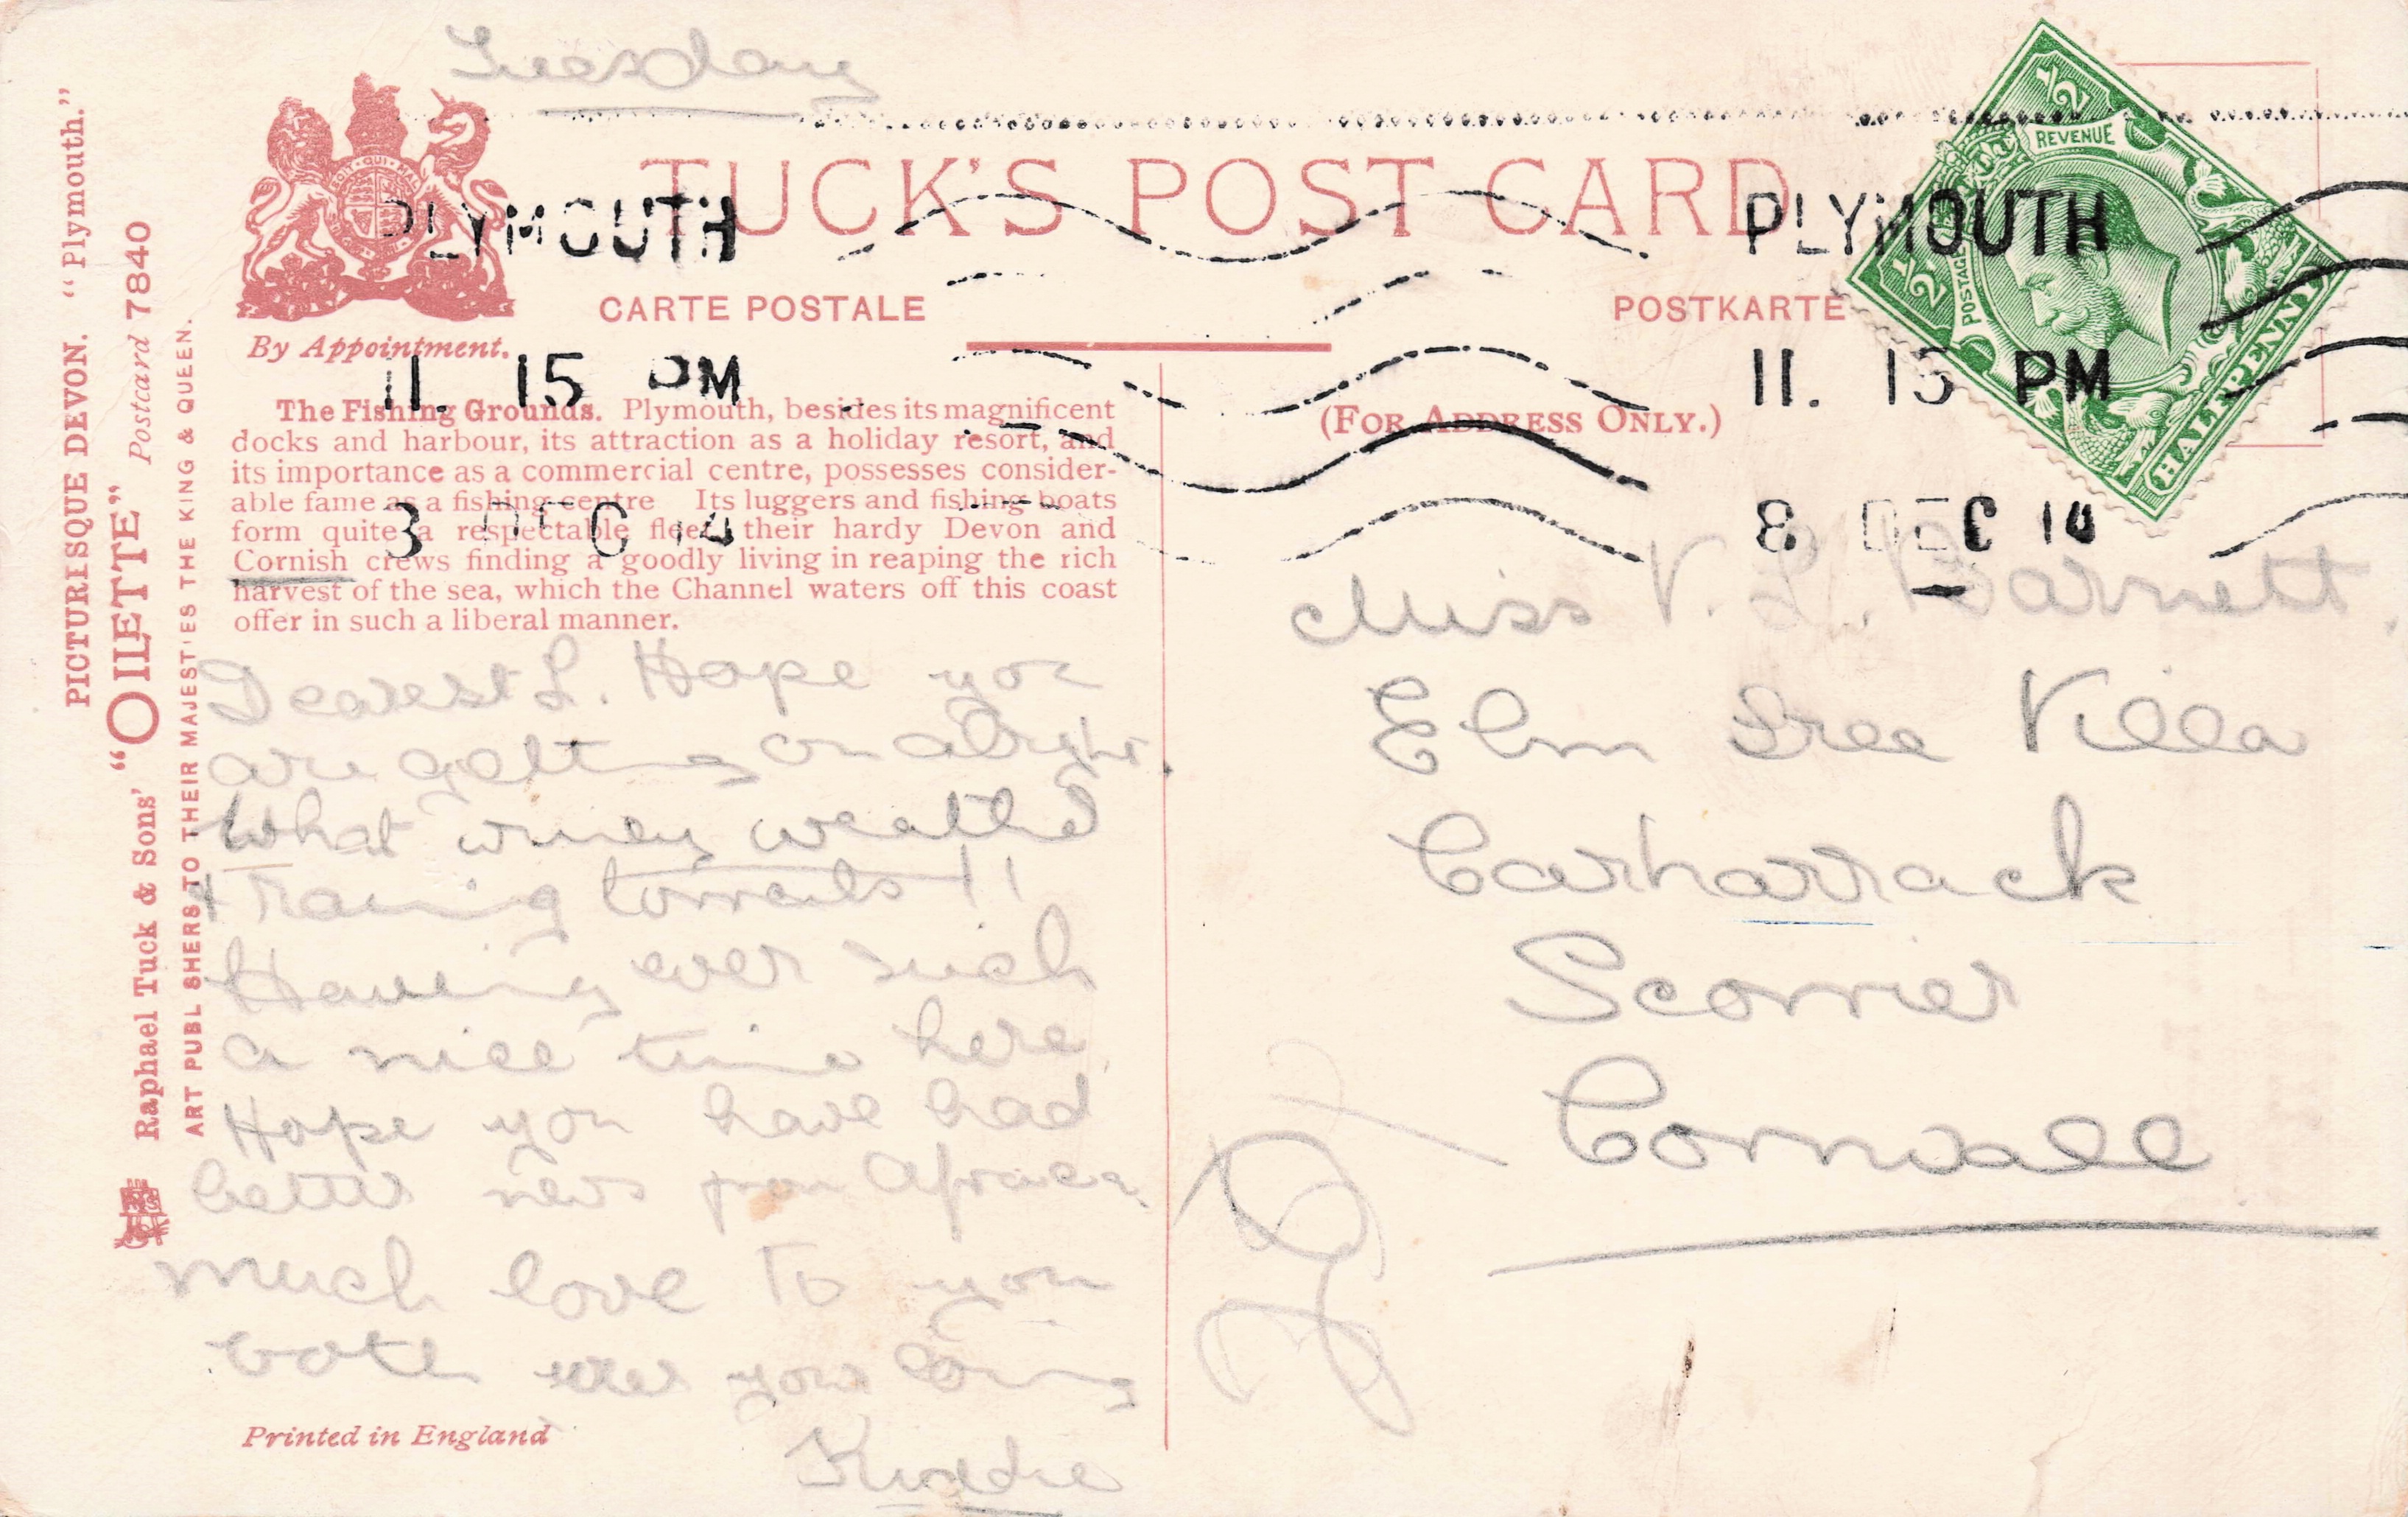 Tuesday
TUCK'S POST CARD
CARTE POSTALE
POSTKARTE
By Appointment.
(FOR ADDRESS ONLY.)
REVENUE
POSTAGE
½
½
HALFPENNY
PLYMOUTH
11. 15 PM
8 DEC 14
PLYMOUTH
11. 15 PM
8 DEC 14
PICTURESQUE DEVON. "Plymouth."
Raphael Tuck & Sons' "OILETTE" Postcard 7840
ART PUBLISHERS TO THEIR MAJESTIES THE KING & QUEEN.
The Fishing Grounds. Plymouth, besides its magnificent
docks and harbour, its attraction as a holiday resort, and
its importance as a commercial centre, possesses consider-
able fame as a fishing centre Its luggers and fishing boats
form quite a respectable fleet, their hardy Devon and
Cornish crews finding a goodly living in reaping the rich
harvest of the sea, which the Channel waters off this coast
offer in such a liberal manner.
Dearest L. Hope you
are getting on alright.
What weather
+ raining torrents !!
Having ever such
a nice time here.
Hope you have had
better news from Africa.
Much love to you
both ever your loving
Printed in England
Miss V. L. Barnett.
Elm Tree Villa
Carharrack
Scorrier
Cornwall